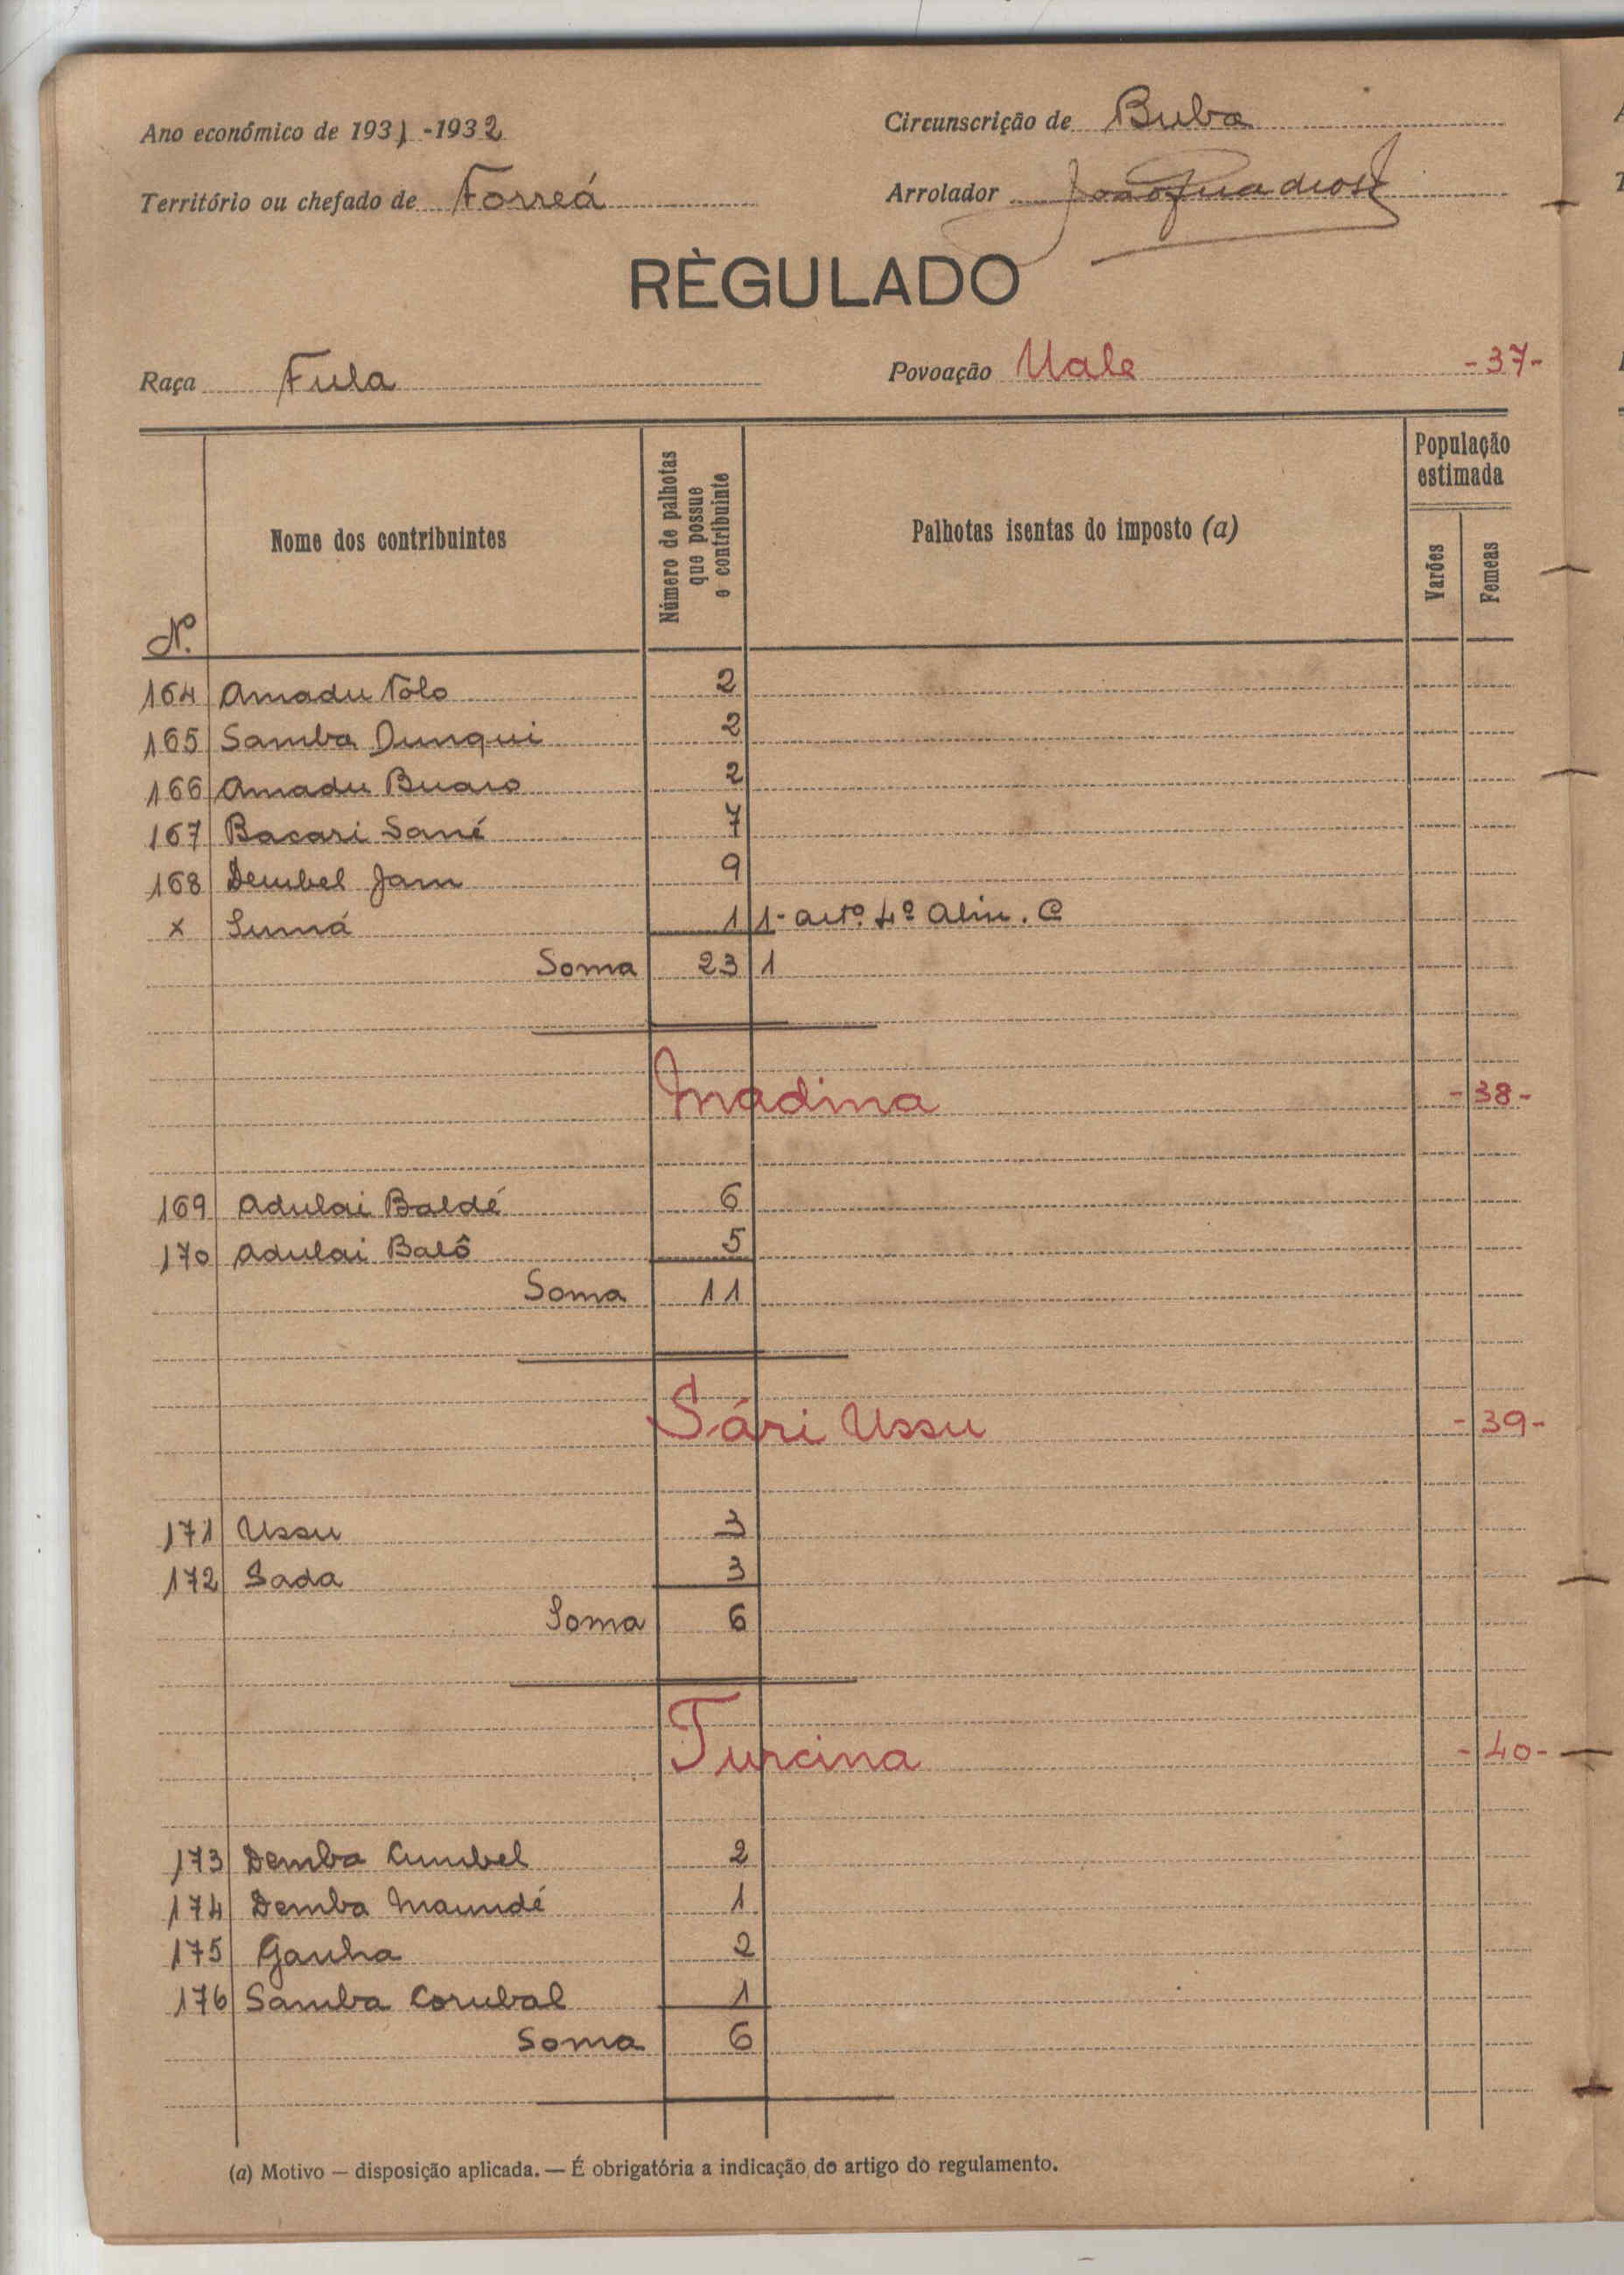 Ano económico de 1931-1932
Circunscrição de Buba
Território ou chefado de Forreá
Arrolador João
RÈGULADO
Raça Fula
Povoação Uale -37-
Nº
Nome dos contribuintes
Número de palhotas que possue o contribuinte
Palhotas isentas do imposto (a)
População estimada
Varões
Femeas
164 Amadu Tolo 2
165 Samba Dunqui 2
166 Amadu Buaro 2
167 Bacari Sané 7
168 Dembel Jam 9
x Sumá 1 1- artº 4º Alin. C
Soma 23 1
Madina -38-
169 Adulai Baldé 6
170 Adulai Balô 5
Soma 11
Sári Ussu -39-
171 Ussu 3
172 Sada 3
Soma 6
Turcina -40-
173 Demba Cumbel 2
174 Demba Maundé 1
175 Ganha 2
176 Samba Corubal 1
Soma 6
(a) Motivo — disposição aplicada. — É obrigatória a indicação do artigo do regulamento.